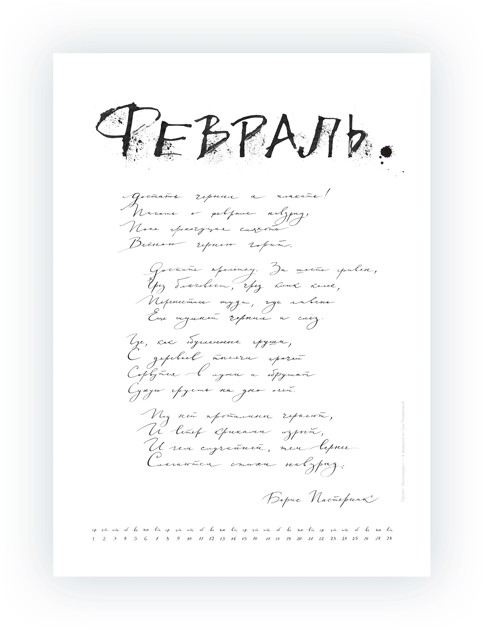 Февраль.
Достать чернил и плакать!
Писать о феврале навзрыд,
Пока грохочущая слякоть
Весною черною горит.
Достать пролетку. За шесть гривен,
Чрез благовест, чрез клик колес,
Перенестись туда, где ливень
Еще шумней чернил и слез.
Где, как обугленные груши,
С деревьев тысячи грачей
Сорвутся в лужи и обрушат
Сухую грусть на дно очей.
Под ней проталины чернеют,
И ветер криками изрыт,
И чем случайней, тем вернее
Слагаются стихи навзрыд.
Борис Пастернак
1 2 3 4 5 6 7 8 9 10 11 12 13 14 15 16 17 18 19 20 21 22 23 24 25 26 27 28